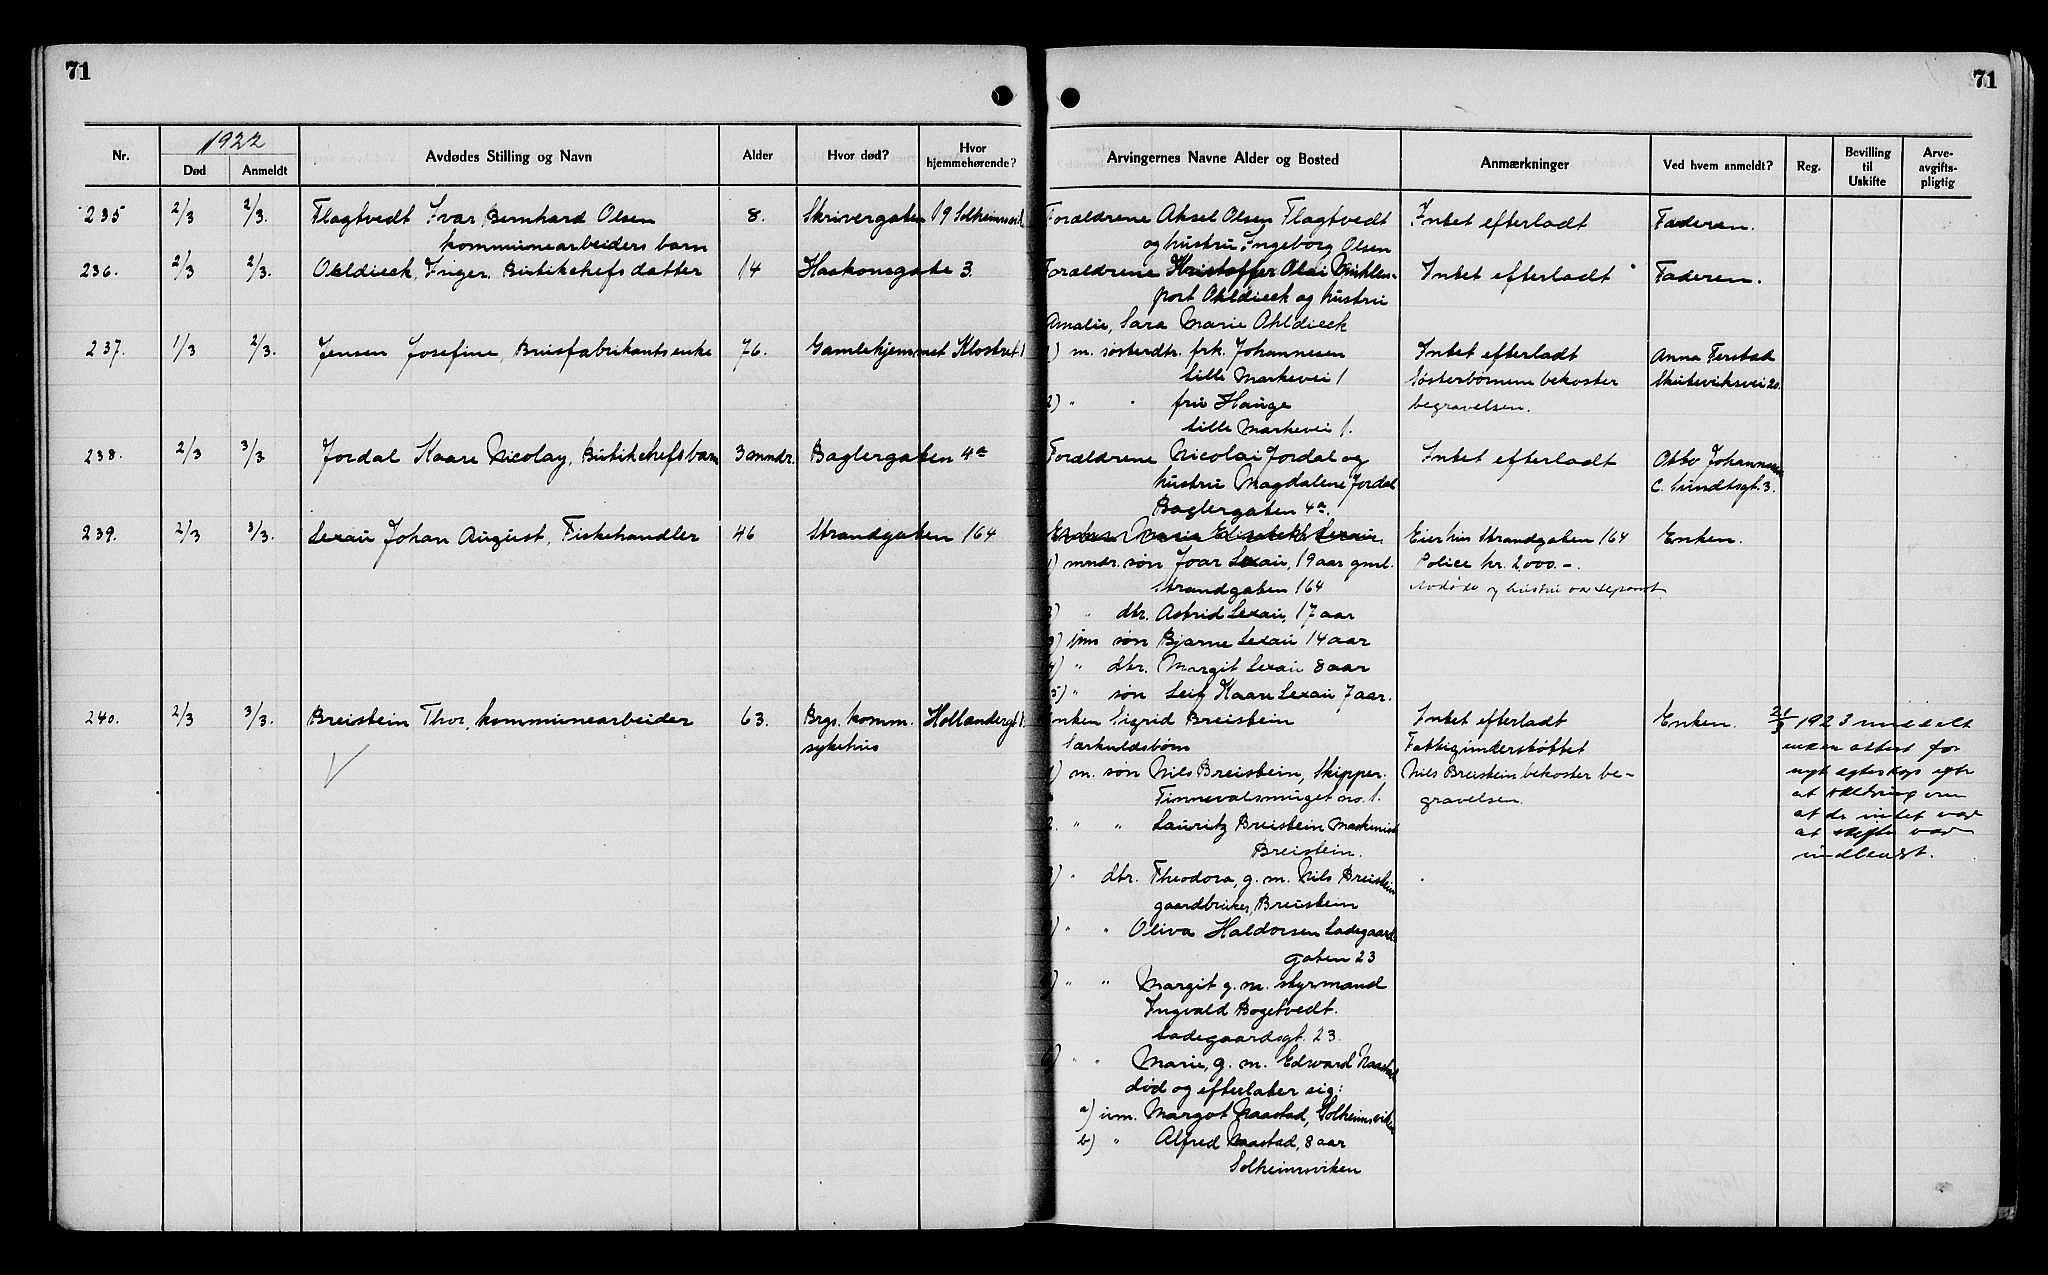 71
71
1922
Nr.
Død
Anmeldt
Avdødes Stilling og Navn
Alder
Hvor død?
Hvor hjemmehørende?
Arvingernes Navne Alder og Bosted
Anmærkninger
Ved hvem anmeldt?
Reg.
Bevilling til Uskifte
Arve-avgifts-pligtig
235 2/3 2/3. Flagtvedt Ivar Bernhard Olsen 8. Skrivergaten 19 Solheimsvik Forældrene Aksel Olsen Flagtvedt Intet efterladt Faderen.
kommunearbeiders barn og hustru Ingeborg Olsen
236. 2/3 2/3. Ohldieck, Inger, Butikchefs datter 14 Haakonsgate 3. Forældrene Kristoffer Olai Muhlen- Intet efterladt Faderen.
port Ohldieck og hustru
Amalie, Sara Marie Ohldieck
237. 1/3 2/3. Jensen Josefine, Brusfabrikants enke 76. Gamlehjemmet Klostret 1) m. søsterdtr. frk. Johannesen Intet efterladt Anna Ferstad
Lille Markevei 1 Søsterbørnene bekoster Skuteviksvei 20.
2) " " fru Hauge begravelsen.
Lille Markevei 1.
238. 2/3 3/3 Jordal Kaare Nicolay, Butikchefs barn 3 mndr. Baglergaten 4a Forældrene Nicolai Jordal og Intet efterladt Otto Johannesen
hustru Magdalene Jordal C. Sundtsgt. 3.
Baglergaten 4a.
239. 2/3 3/3. Lexau Johan August, Fiskehandler 46 Strandgaten 164 Enken Maria Elisabeth Lexau, Eier hus Strandgaten 164 Enken.
1) mndr. søn Joar Lexau, 19 aar gml. Police kr. 2000.-.
Strandgaten 164 Avdøde og hustru var separert.
2) " dtr. Astrid Lexau, 17 aar
3) um søn Bjarne Lexau 14 aar
4) " dtr. Margit Lexau 8 aar
5) " søn Leif Kaare Lexau 7 aar.
240. 2/3 3/3. Breistein Thor, kommunearbeider 63. Brgs. komm. Hollendergt. Enken Sigrid Breistein Intet efterladt Enken. 21/3 1923 meddelt
sykehus Særkuldsbørn Fattigunderstøttet enken attest for
1) m. søn Nils Breistein, Skipper. Nils Breistein bekoster be- nyt egteskap
Finnevalsmuget no. 1. gravelsen. at erklæring om
2. " " Lauritz Breistein Maskinist at de intet var
Breistein. at skifte var
indlevert.
3) " dtr. Theodora, g. m. Nils Breistein
gaardbruker, Breistein
4) " " Oliva Haldorsen Ladegaards
gaten 23
5) " " Margit g. m. styrmand
Ingvald Bogetvedt.
Ladegaardsgt. 23.
6) " " Marie, g. m. Edward Naastad
død og efterlater sig:
a) um. Margot Naastad, Solheimsviken
b) " Alfred Naastad, 8 aar
Solheimsviken